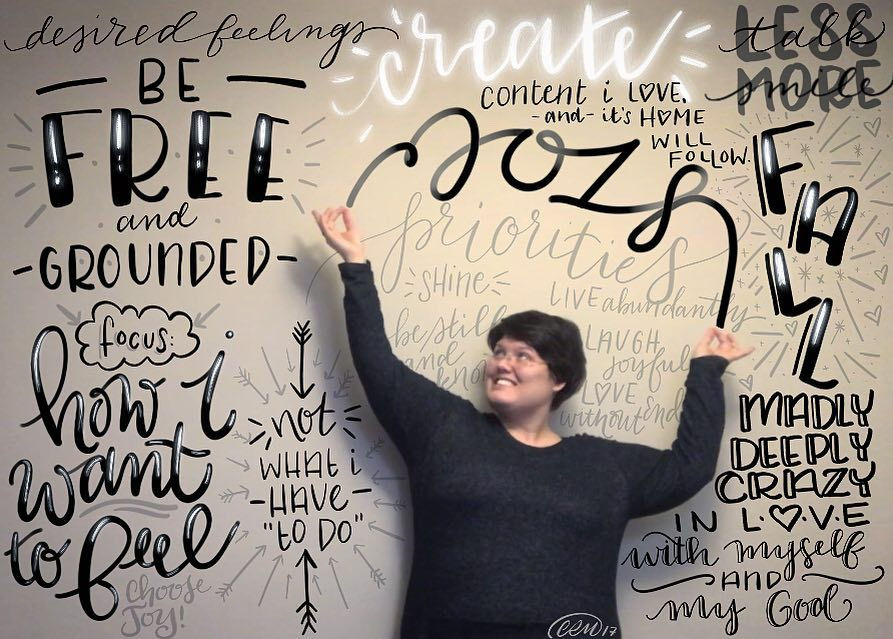 desired feelings
BE
FREE
and
-GROUNDED-
focus:
how i
want
to feel
choose
Joy!
not
WHAt i
-HAVE-
"to DO"
create
content i LOVE.
-and- it's HOME
WILL
FOLLOW.
2018
priorities
SHINE
LIVE abundantly
be still
and
know
LAUGH
joyfully
LOVE
without end
LESS
talk
MORE
smile
FALL
MADLY
DEEPLY
CRAZY
IN L·O·V·E
with myself
AND
my God
17